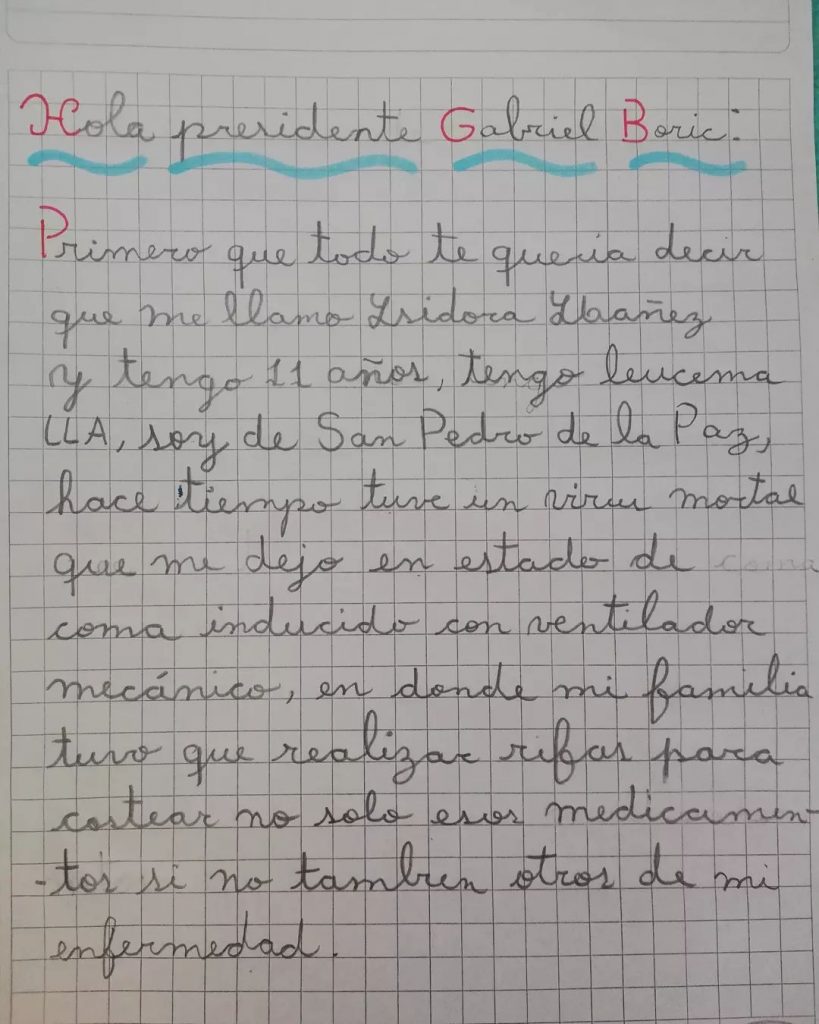 Hola presidente Gabriel Boric:
Primero que todo te queria decir
que me llamo Isidora Ibañez
y tengo 11 años, tengo leucema
LLA, soy de San Pedro de la Paz,
hace tiempo tuve un virus mortal
que me dejo en estado de coma
coma inducido con ventilador
mecánico, en donde mi familia
tuvo que realizar rifas para
costear no solo esos medicamen-
-tos si no tambien otros de mi
enfermedad.